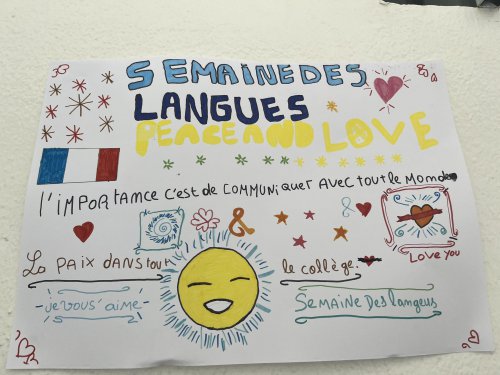 SEMAINE DES
LANGUES
PEACE AND LOVE
l'IMPORTANCE C'EST DE COMMUNIQUER AVEC TOUT LE MONDE
&
&
La PAIX DANS tout
le collège.
Love you
-je vous aime-
SEMAINE Des langeus